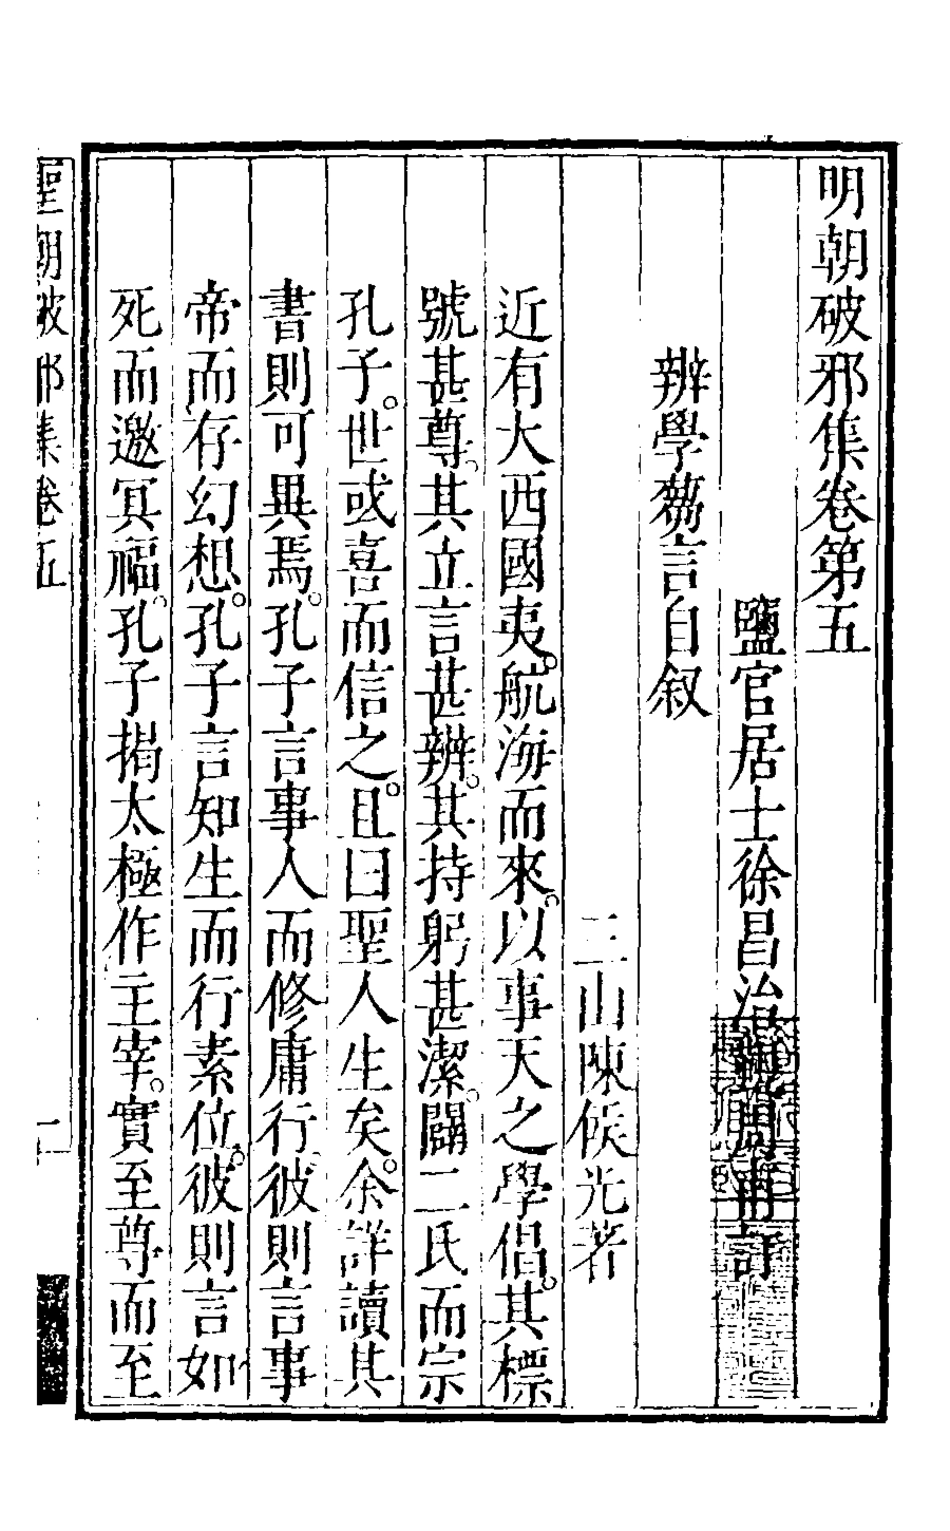 明朝破邪集卷第五
鹽官居士徐昌治覲周甫訂
辨學蒭言自叙
三山陳候光著
近有大西國夷。航海而來。以事天之學倡。其標
號甚尊。其立言甚辨。其持躬甚潔。闢二氏而宗
孔子。世或喜而信之。且曰聖人生矣。余詳讀其
書則可異焉。孔子言事人而修庸行。彼則言事
帝而存幻想。孔子言知生而行素位。彼則言如
死而邀冥福。孔子揭太極作主宰。實至尊而至
聖朝破邪集卷五
一